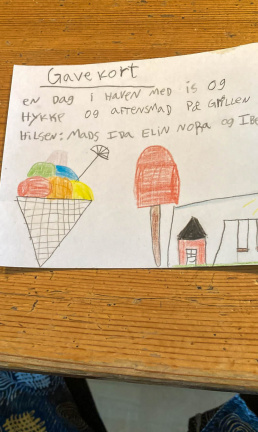 Gavekort
en Dag i HAVEN MED is og
HYKKE og AFTENSMAD PÅ GRILLEN
Hilsen: MADS IDA ELIN NORA og IBE